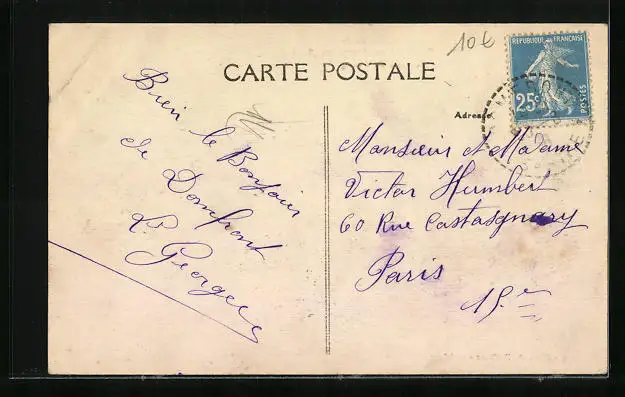 10€
REPUBLIQUE FRANÇAISE
25c
POSTES
CARTE POSTALE
Adresse
Bien le Bonjour
de
Domfront
L. Georges
Monsieur et Madame
Victor Humbert
60 Rue Castasgnary
Paris
15.e